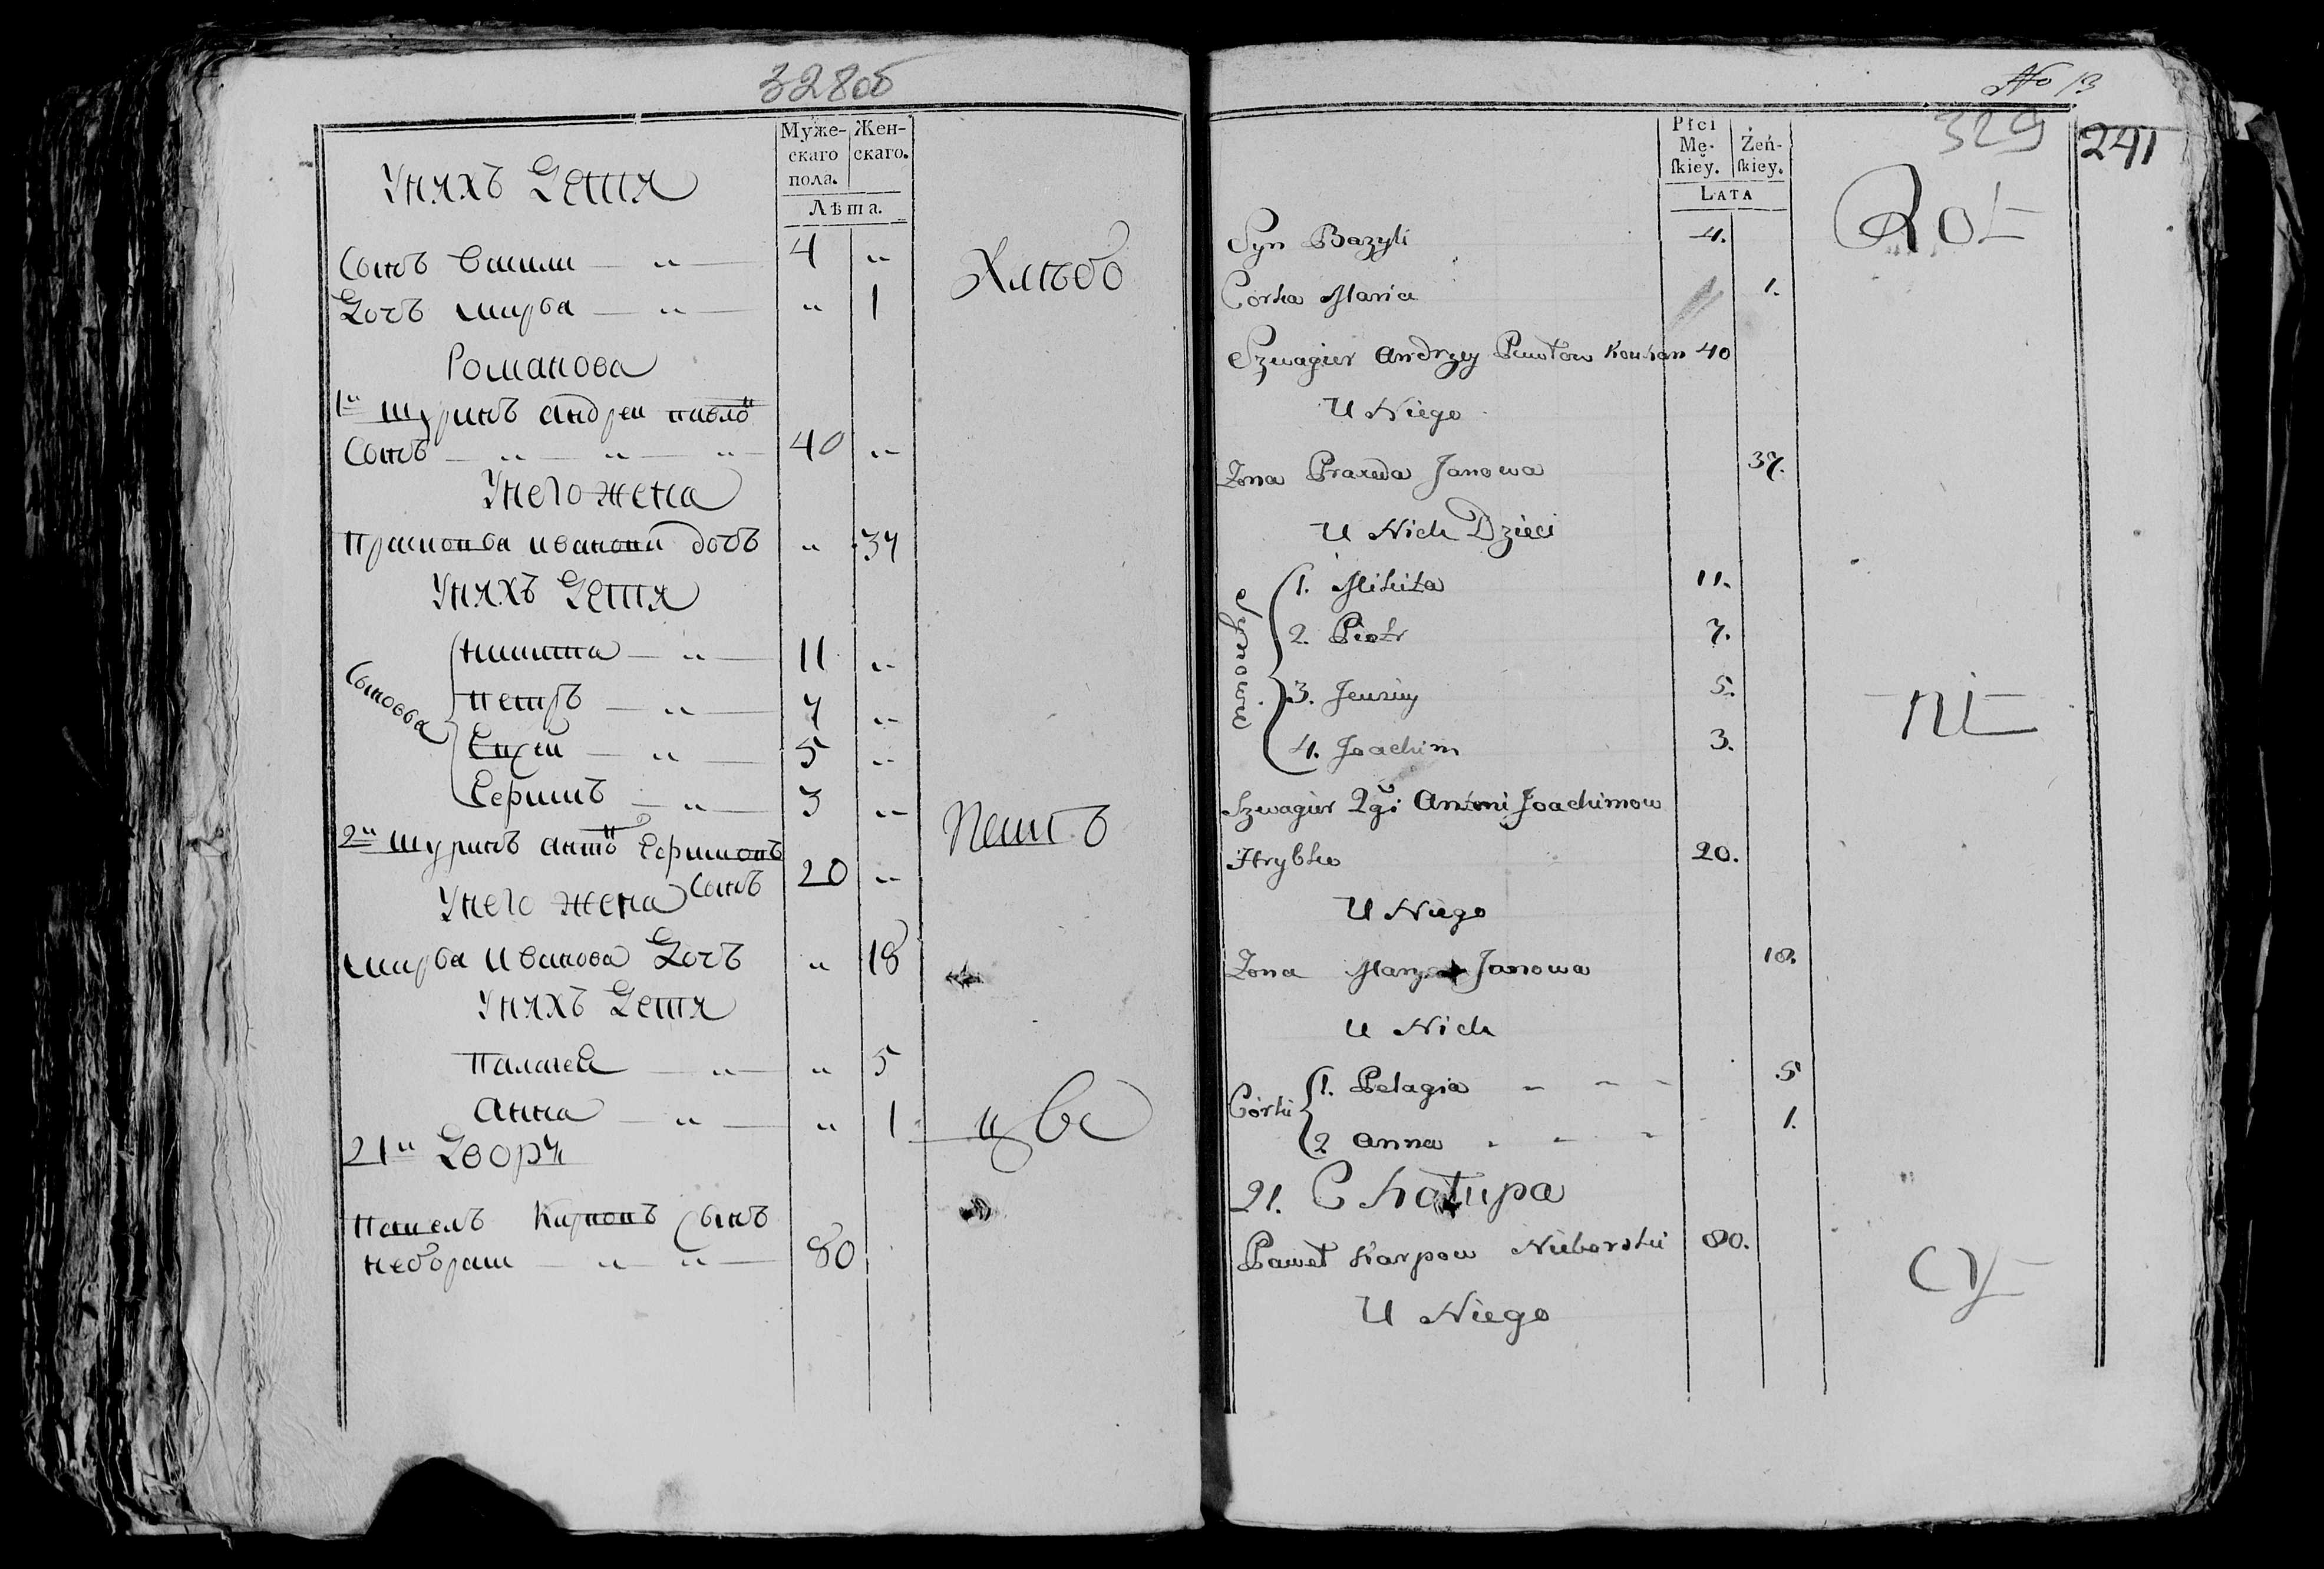 328об
Муже-
скаго
пола.
Жен-
скаго.
Лѣта.
Унихъ Дети
Сынъ Васили — „ — 4 „
Дочъ Марва — „ — „ 1
Романова
1й шуринъ Андреи Павло
Сынъ — „ — „ — „ — 40 „
Унего жена
Прасковя Иванова дочъ „ 37
Унихъ Дети
Сыновья
Никита — „ — 11 „
Петръ — „ — 7 „
5 „
Ефимъ — „ — 3 „
2й шуринъ Анто Ефимовъ
Сынъ 20 „
Унего жена
Марва Иванова Дочъ „ 18
Унихъ Дети
Палагея — „ — „ 5
Анна — „ — „ 1
21й Дворъ
Павелъ Карповъ Сынъ
Неборски — „ — „ — 80
No 13
329
241
Płci
Mę-
ſkiey.
Żeń-
ſkiey.
LATA
Syn Bazyli 4.
Corka Maria 1.
Szwagier Andrzey Pawłow Kouhan 40
U Niego
Zona Praxeda Janowa 37.
U Nich Dzieci
Synowie
1. Mikita 11.
2. Piotr 7.
3. 5.
4. Joachim 3.
Szwagier 2gi Antoni Joachimow
Hrybko 20.
U Niego
Zona Janowa 18.
U Nich
Córki
1. Pelagia - - - 5
2 Anna - - - 1.
21. Chałupa
Paweł Karpow Nieborski 80.
U Niego